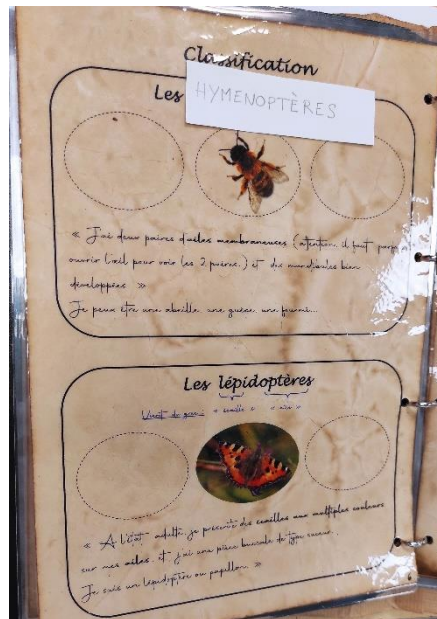 Classification
Les HYMENOPTÈRES
« J'ai deux paires d'ailes membraneuses (attention, il faut
ouvrir l'œil pour voir les 2 paires,) et des mandibules bien
développées »
Je peux être une abeille, une guêpe, une fourmi...
Les lépidoptères
Vient du grec: « écaille » « aile »
« A l'état adulte, je présente des écailles aux multiples couleurs
sur mes ailes, et j'ai une pièce buccale de type suceur.
Je suis un lépidoptère ou papillon. »